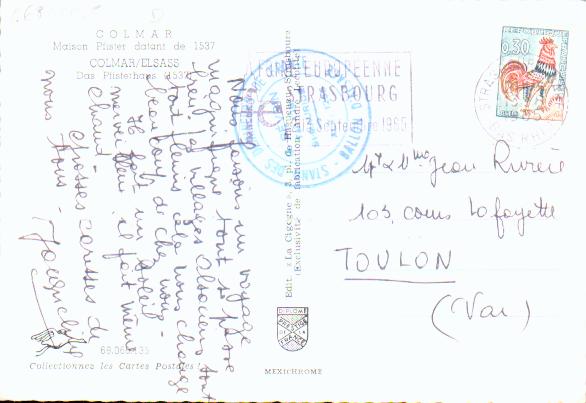 COLMAR
Maison Pfister datant de 1537
COLMAR/ELSASS
Das Pfisterhaus (1537)
Nous faisons un voyage
magnifique tout se passe
bien les villages Alsaciens sont
tout fleuris cela nous change
beaucoup de chez nous.
Il fait un soleil
merveilleux il fait même
chaud.
Grosses caresses de
nous tous.
Jacqueline
68.066.35
Collectionnez les Cartes Postales !
Edit. "La Cigogne", 3, pl. de Haguenau, Strasbourg
(Exclusivité de fabrication
DIPLOME
PRESTIGE
DE LA
FRANCE
MEXICHROME
EUROPEENNE
STRASBOURG
Septembre 1965
BALLON
STAND
0,30
Mr & Mme Jean Rivière
103, cours Lafayette
TOULON
(Var)